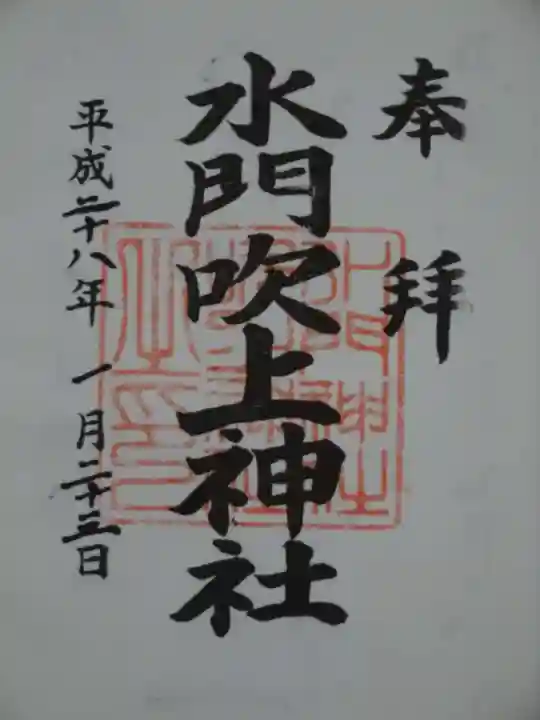 奉拝
水門吹上神社
平成二十八年 一月二十三日